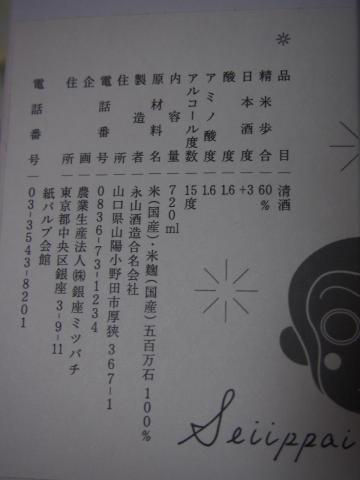 品目 清酒
精米歩合 60%
日本酒度 +3
酸度 1.6
アミノ酸度 1.6
アルコール度数 15度
内容量 720ml
原材料名 米(国産)・米麹(国産)五百万石100%
製造者 永山酒造合名会社
住所 山口県山陽小野田市厚狭367-1
電話番号 0836-73-1234
企画 農業生産法人㈱銀座ミツバチ
住所 東京都中央区銀座3-9-11
紙パルプ会館
電話番号 03-3543-8201
Seiippai